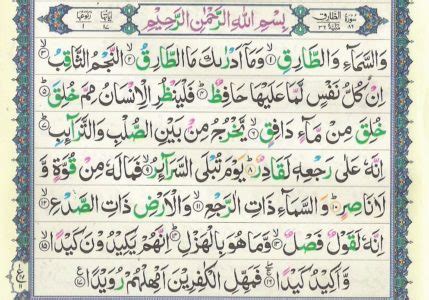 سورة الطارق
بسم الله الرحمن الرحيم
وَالسَّمَآءِ وَالطَّارِقِ ۙ﴿۱﴾ وَمَآ اَدْرٰىكَ مَا الطَّارِقُ ۙ﴿۲﴾ النَّجْمُ الثَّاقِبُ ۙ﴿۳﴾
اِنْ كُلُّ نَفْسٍ لَّمَّا عَلَيْهَا حَافِظٌ ؕ﴿۴﴾ فَلْيَنْظُرِ الْاِنْسَانُ مِمَّ خُلِقَ ؕ﴿۵﴾
خُلِقَ مِنْ مَّآءٍ دَافِقٍ ۙ﴿۶﴾ يَّخْرُجُ مِنْۢ بَيْنِ الصُّلْبِ وَالتَّرَآئِبِ ؕ﴿۷﴾
اِنَّهٗ عَلٰى رَجْعِهٖ لَقَادِرٌ ؕ﴿۸﴾ يَوْمَ تُبْلَى السَّرَآئِرُ ۙ﴿۹﴾ فَمَا لَهٗ مِنْ قُوَّةٍ وَّ
لَا نَاصِرٍ ؕ﴿۱۰﴾ وَالسَّمَآءِ ذَاتِ الرَّجْعِ ۙ﴿۱۱﴾ وَالْاَرْضِ ذَاتِ الصَّدْعِ ۙ﴿۱۲﴾
اِنَّهٗ لَقَوْلٌ فَصْلٌ ۙ﴿۱۳﴾ وَّمَا هُوَ بِالْهَزْلِ ؕ﴿۱۴﴾ اِنَّهُمْ يَكِيْدُوْنَ كَيْدًا ۙ﴿۱۵﴾
وَّاَكِيْدُ كَيْدًا ۚ﴿۱۶﴾ فَمَهِّلِ الْكٰفِرِيْنَ اَمْهِلْهُمْ رُوَيْدًا ﴿۱۷﴾